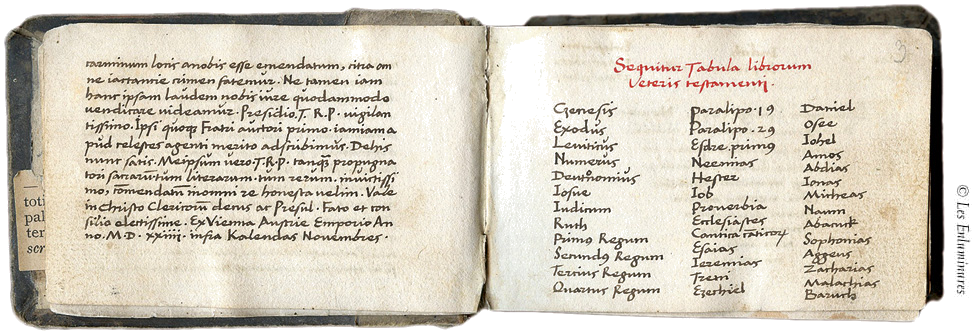 carminum loris anobis esse emendatum, citra om
ne iactantie crimen fatemur. Ne tamen iam
hanc ipsam laudem nobis iure quodammodo
vendicare videamur. Presidio. T. R.P. vigilan
tissimo. Ipsi quoq; Fratri auctori primo. iamiam a
pud celestes agenti merito adscribimus. De his
nunc satis. Meipsum vero. T. R.P. tanq̃ propugna
tori sacrarum literarum. tum rerum. invictissi
mo, com̃endatũ in omni re honesta velim. Vale
in Christo Clericorũ decus ac Presul. Fato et con
silio electissime. Ex Vienna Austrie Emporio An
no. M. D. xxiiii. infra Kalendas Novembres.
3
Sequitur Tabula librorum
Veteris testamenti.
Genesis
Exodus
Leviticus
Numerus
Iosue
Iudicum
Ruth
Primus Regum
Secundus Regum
Tercius Regum
Quartus Regum
Paralipo. 19
Paralipo. 29
Esdre. primus
Neemias
Hester
Iob
Proverbia
Ecclesiastes
Cantica
Esaias
Ieremias
Treni
Ezechiel
Daniel
Osee
Iohel
Amos
Abdias
Ionas
Micheas
Naum
Abacuk
Sophonias
Aggeus
Zacharias
Malachias
Baruch
toti
pal
ter
scr
© Les Enluminures